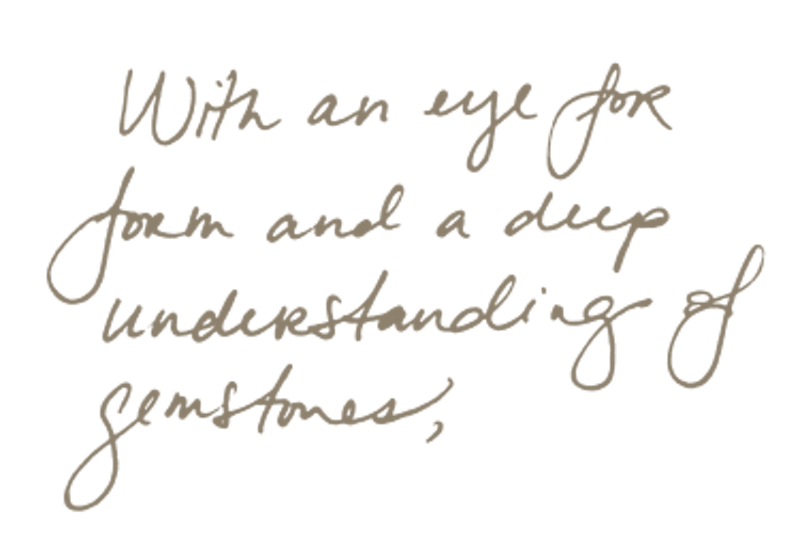 With an eye for
form and a deep
understanding of
gemstones,